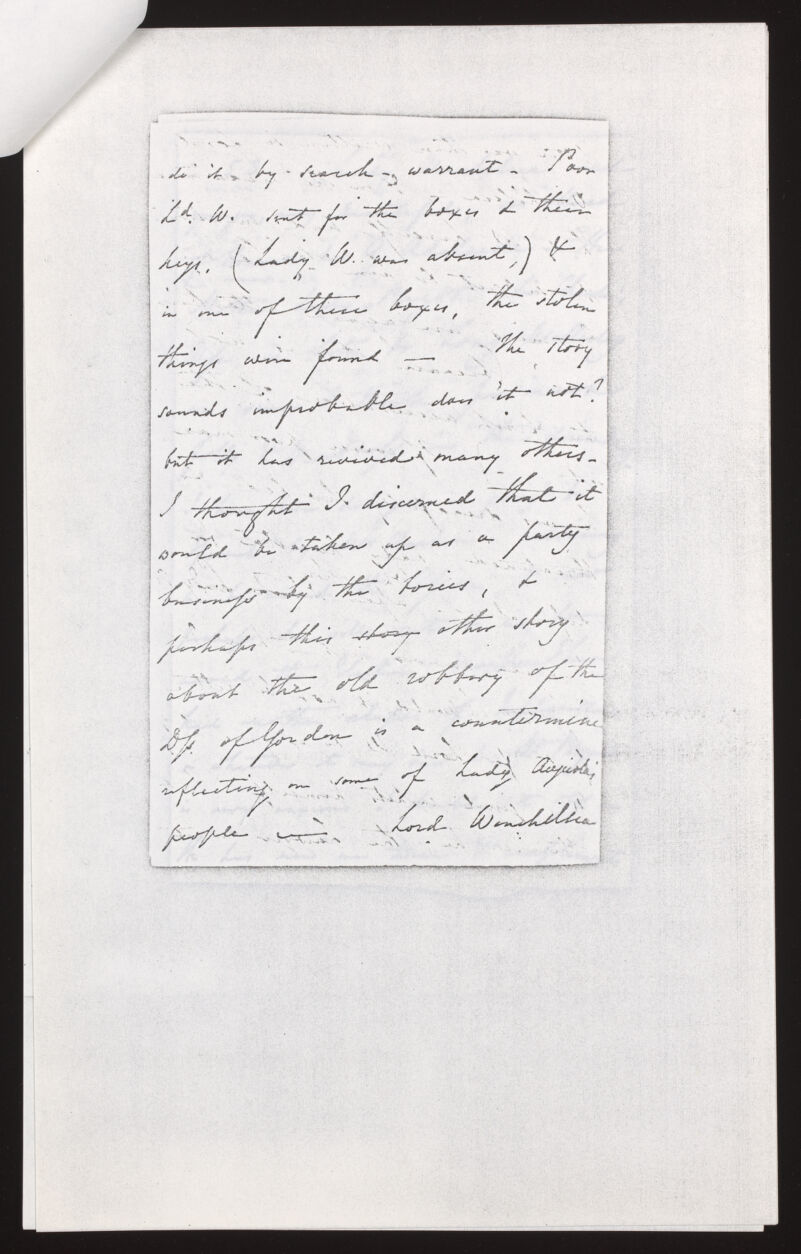 do it by search-warrant - Poor
Ld. W. sent for the boxes & their
keys, (Lady W. was absent,) &
in one of these boxes, the stolen
things were found — The story
sounds improbable does it not?
but it has revived many others -
I thought I discerned that it
would be taken up as a party
business by the tories, &
perhaps this story other story
about the old robbery of the
Dss. of Gordon is a countermine
reflecting on some of Lady Augusta's
people — Lord Winchilsea